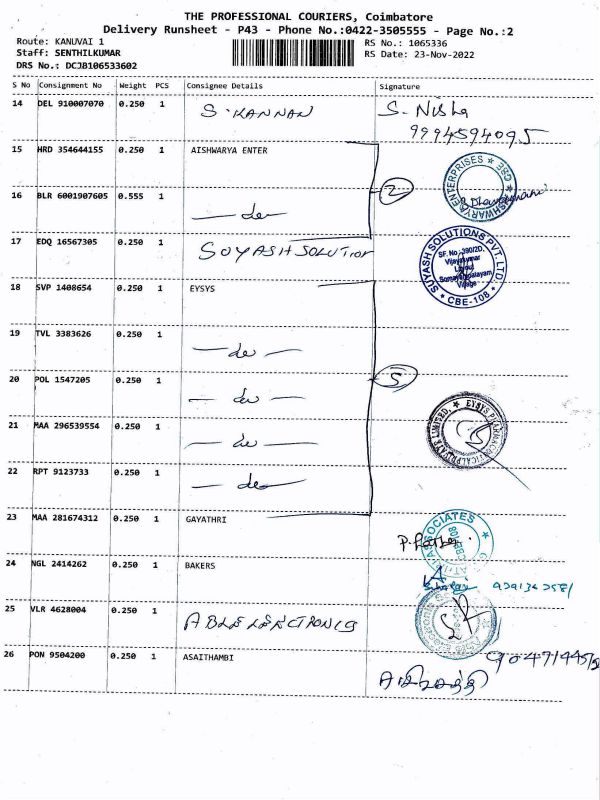 THE PROFESSIONAL COURIERS, Coimbatore
Delivery Runsheet - P43 - Phone No.:0422-3505555 - Page No.:2
Route: KANUVAI 1 RS No.: 1065336
Staff: SENTHILKUMAR RS Date: 23-Nov-2022
DRS No.: DCJB106533602
S No Consignment No Weight PCS Consignee Details Signature
14 DEL 910007070 0.250 1 S. KANNAN S. Nisha
9994594095
15 HRD 354644155 0.250 1 AISHWARYA ENTER
16 BLR 6001907605 0.555 1 — do — 2
AISHWARYA ENTERPRISES ★ CBE ★
17 EDQ 16567305 0.250 1 SUYASH SOLUTION
SUYASH SOLUTIONS PVT. LTD. ★ CBE-108 ★
SF. No. 390/2D,
Vijayakumar
Layout
Somayampalayam
Village
18 SVP 1408654 0.250 1 EYSYS
19 TVL 3383626 0.250 1 — do —
20 POL 1547205 0.250 1 — do — 5
21 MAA 296539554 0.250 1 — do —
EYSYS PHARMACEUTICAL PRIVATE LIMITED. ★
22 RPT 9123733 0.250 1 — do —
23 MAA 281674312 0.250 1 GAYATHRI
ASSOCIATES ★
24 NGL 2414262 0.250 1 BAKERS
25 VLR 4628004 0.250 1 ABLE ELECTRONICS
26 PON 9504200 0.250 1 ASAITHAMBI